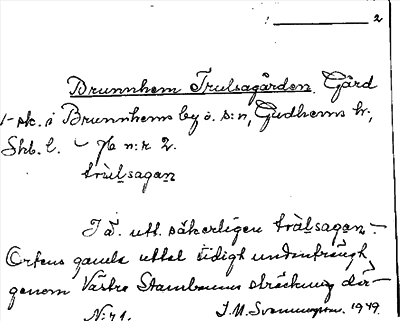 2
Brunnhem Trulsagården. Gård
i Brunnhems by o. s:n, Gudhems hr,
Skb. l. — Jb n:r 2.
trùlsagan
I ä. utt. säkerligen tràlsagan.—
Ortens gamla uttal tidigt undanträngt
genom Västra Stambanans sträckning där-
N:r 1. 1949.